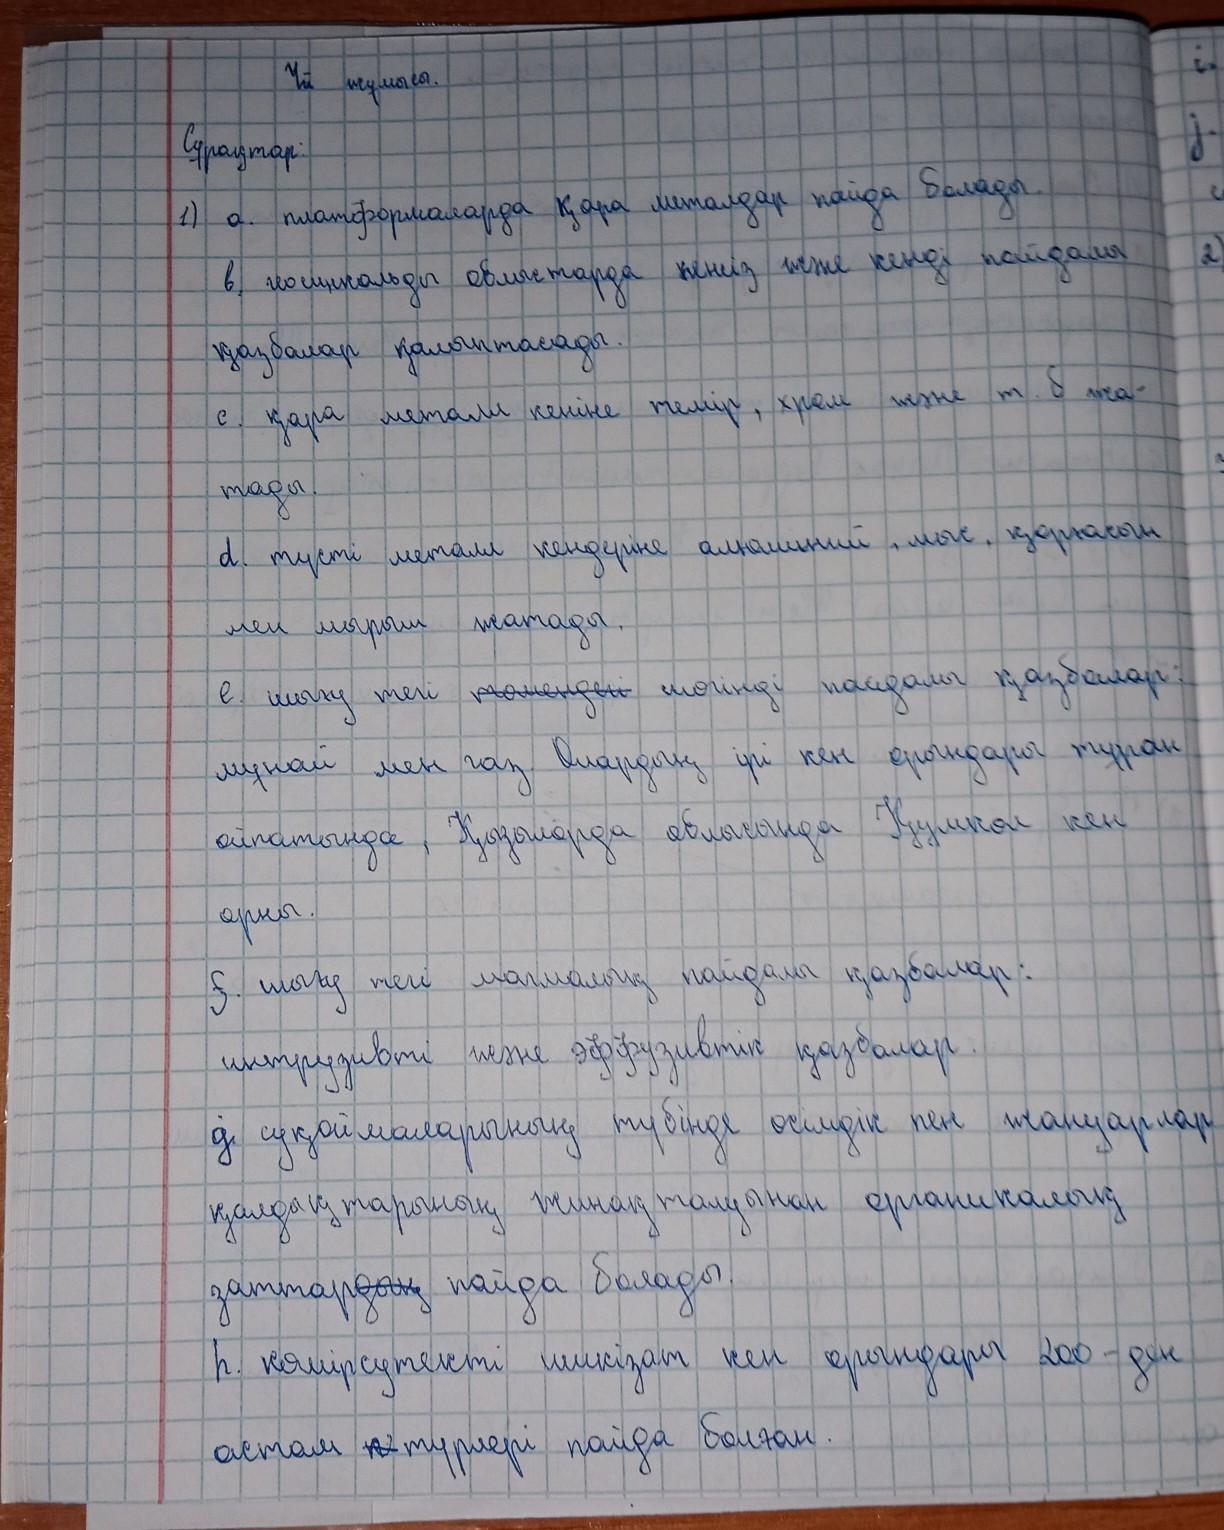 Үй жұмысы.
Сұрақтар:
1) a. платформаларда қара металдар пайда болады.
b. геосинкальды облыстарда кенсіз және кенді пайдалы
қазбалар қалыптасады.
c. қара металл кеніне темір, хром және т.б жа-
тады.
d. түсті металл кендеріне алюминий, мыс, қорғасын
мен мырыш жатады.
e. шығу тегі шөгінді пайдалы қазбалар:
мұнай мен газ. Олардың ірі кен орындары тұран
ойпатында, Қызылорда облысында Құмкөл кен
орны.
f. шығу тегі магмалық пайдалы қазбалар:
интрузивті және эффузивтік қазбалар.
g. суқоймаларының түбінде өсімдік пен жануарлар
қалдықтарының жинақталуынан органикалық
заттар пайда болады.
h. көмірсутекті шикізат кен орындары 200-ден
астам түрлері пайда болған.
i.
j.
2)